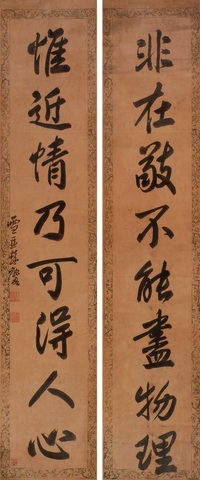 非在敬不能盡物理
惟近情乃可得人心
雪